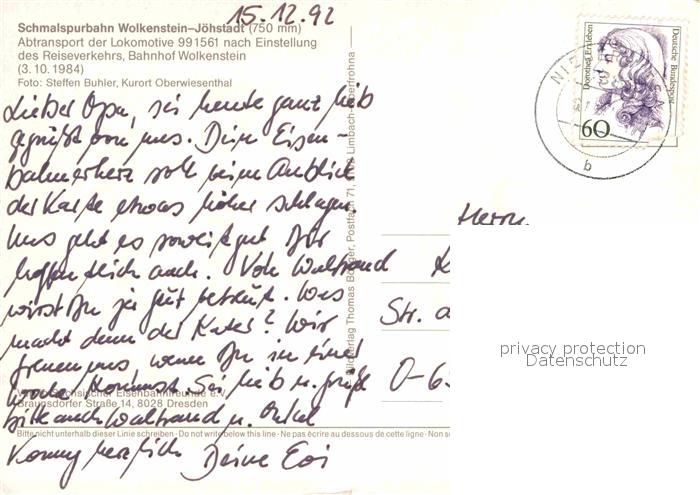 15.12.92
Schmalspurbahn Wolkenstein–Jöhstadt (750 mm)
Abtransport der Lokomotive 991561 nach Einstellung
des Reiseverkehrs, Bahnhof Wolkenstein
(3.10.1984)
Foto: Steffen Buhler, Kurort Oberwiesenthal
Lieber Opa, sei heute ganz lieb
gegrüßt von uns. Dein Eisen-
bahnerherz soll beim Anblick
der Karte etwas höher schlagen.
Uns geht es soweit gut. Dir
hoffentlich auch. Von Waltraud
wirst Du ja gut betreut. Was
macht denn der Kater? Wir
freuen uns, wenn Du in einer
Woche kommst. Sei lieb u. grüße
bitte auch Waltraud u. Onkel
Konny herzlich Deine Evi
Sächsischer Eisenbahnfreunde e.V.
Braunsdorfer Straße 14, 8028 Dresden
Bitte nicht unterhalb dieser Linie schreiben - Do not write below this line - Ne pas écrire au dessous de cette ligne - Non s
Bildverlag Thomas Böttger, Postfach 71, Limbach-Oberfrohna
Deutsche Bundespost
Dorothea Erxleben
60
b
Herrn
Str.
O-65
privacy protection
Datenschutz